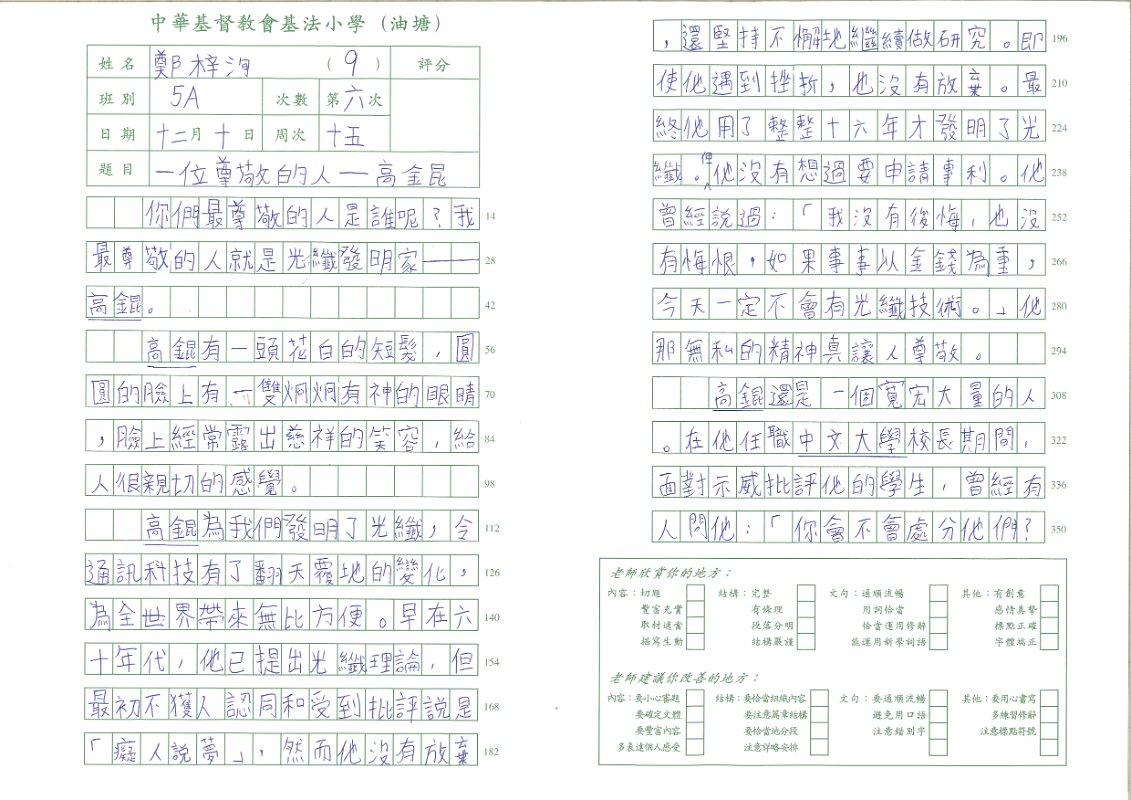 中華基督教會基法小學（油塘）
姓名 鄭梓洵 （9） 評分
班別 5A 次數 第六次
日期 十二月十日 周次 十五
題目 一位尊敬的人—高金昆
你們最尊敬的人是誰呢？我 14
最尊敬的人就是光纖發明家—— 28
高錕。 42
高錕有一頭花白的短髮，圓 56
圓的臉上有一雙炯炯有神的眼睛 70
，臉上經常露出慈祥的笑容，給 84
人很親切的感覺。 98
高錕為我們發明了光纖，令 112
通訊科技有了翻天覆地的變化， 126
為全世界帶來無比方便。早在六 140
十年代，他已提出光纖理論，但 154
最初不獲人認同和受到批評說是 168
「癡人說夢」，然而他沒有放棄 182
，還堅持不懈地繼續做研究。即 196
使他遇到挫折，也沒有放棄。最 210
終他用了整整十六年才發明了光 224
纖。但他沒有想過要申請專利。他 238
曾經說過：「我沒有後悔，也沒 252
有悔恨，如果事事以金錢為重， 266
今天一定不會有光纖技術。」他 280
那無私的精神真讓人尊敬。 294
高錕還是一個寬宏大量的人 308
。在他任職中文大學校長期間， 322
面對示威批評他的學生，曾經有 336
人問他：「你會不會處分他們？ 350
老師欣賞你的地方：
內容：切題 結構：完整 文句：通順流暢 其他：有創意
豐富充實 有條理 用詞恰當 感情真摯
取材適當 段落分明 恰當運用修辭 標點正確
描寫生動 結構嚴謹 能運用新學詞語 字體端正
老師建議你改善的地方：
內容：要小心審題 結構：要恰當組織內容 文句：要通順流暢 其他：要用心書寫
要確定文體 要注意篇章結構 避免用口語 多練習修辭
要豐富內容 要恰當地分段 注意錯別字 注意標點符號
多表達個人感受 注意詳略安排